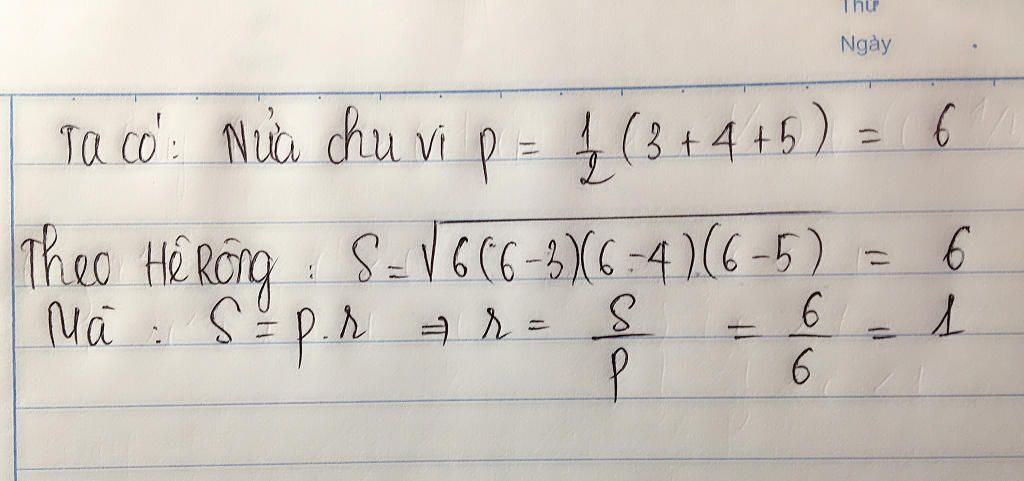 Thứ
Ngày
Ta có: Nửa chu vi p = 1/2 (3 + 4 + 5) = 6
Theo HêRông: S = √(6(6-3)(6-4)(6-5)) = 6
Mà: S = p.r ⇒ r = S/p = 6/6 = 1